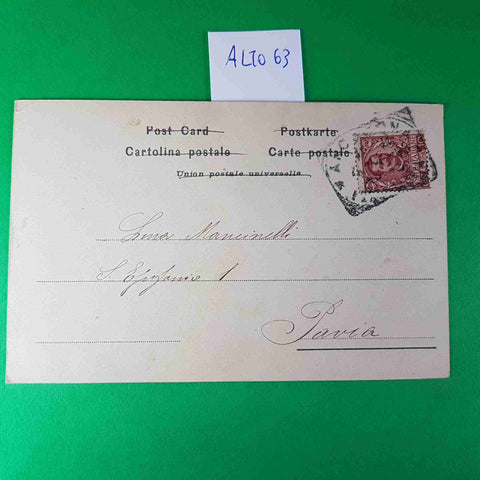 ALTO 63
Post Card Postkarte
Cartolina postale Carte postale
Union postale universelle
Mancinelli
S. Epifanio 1
Pavia